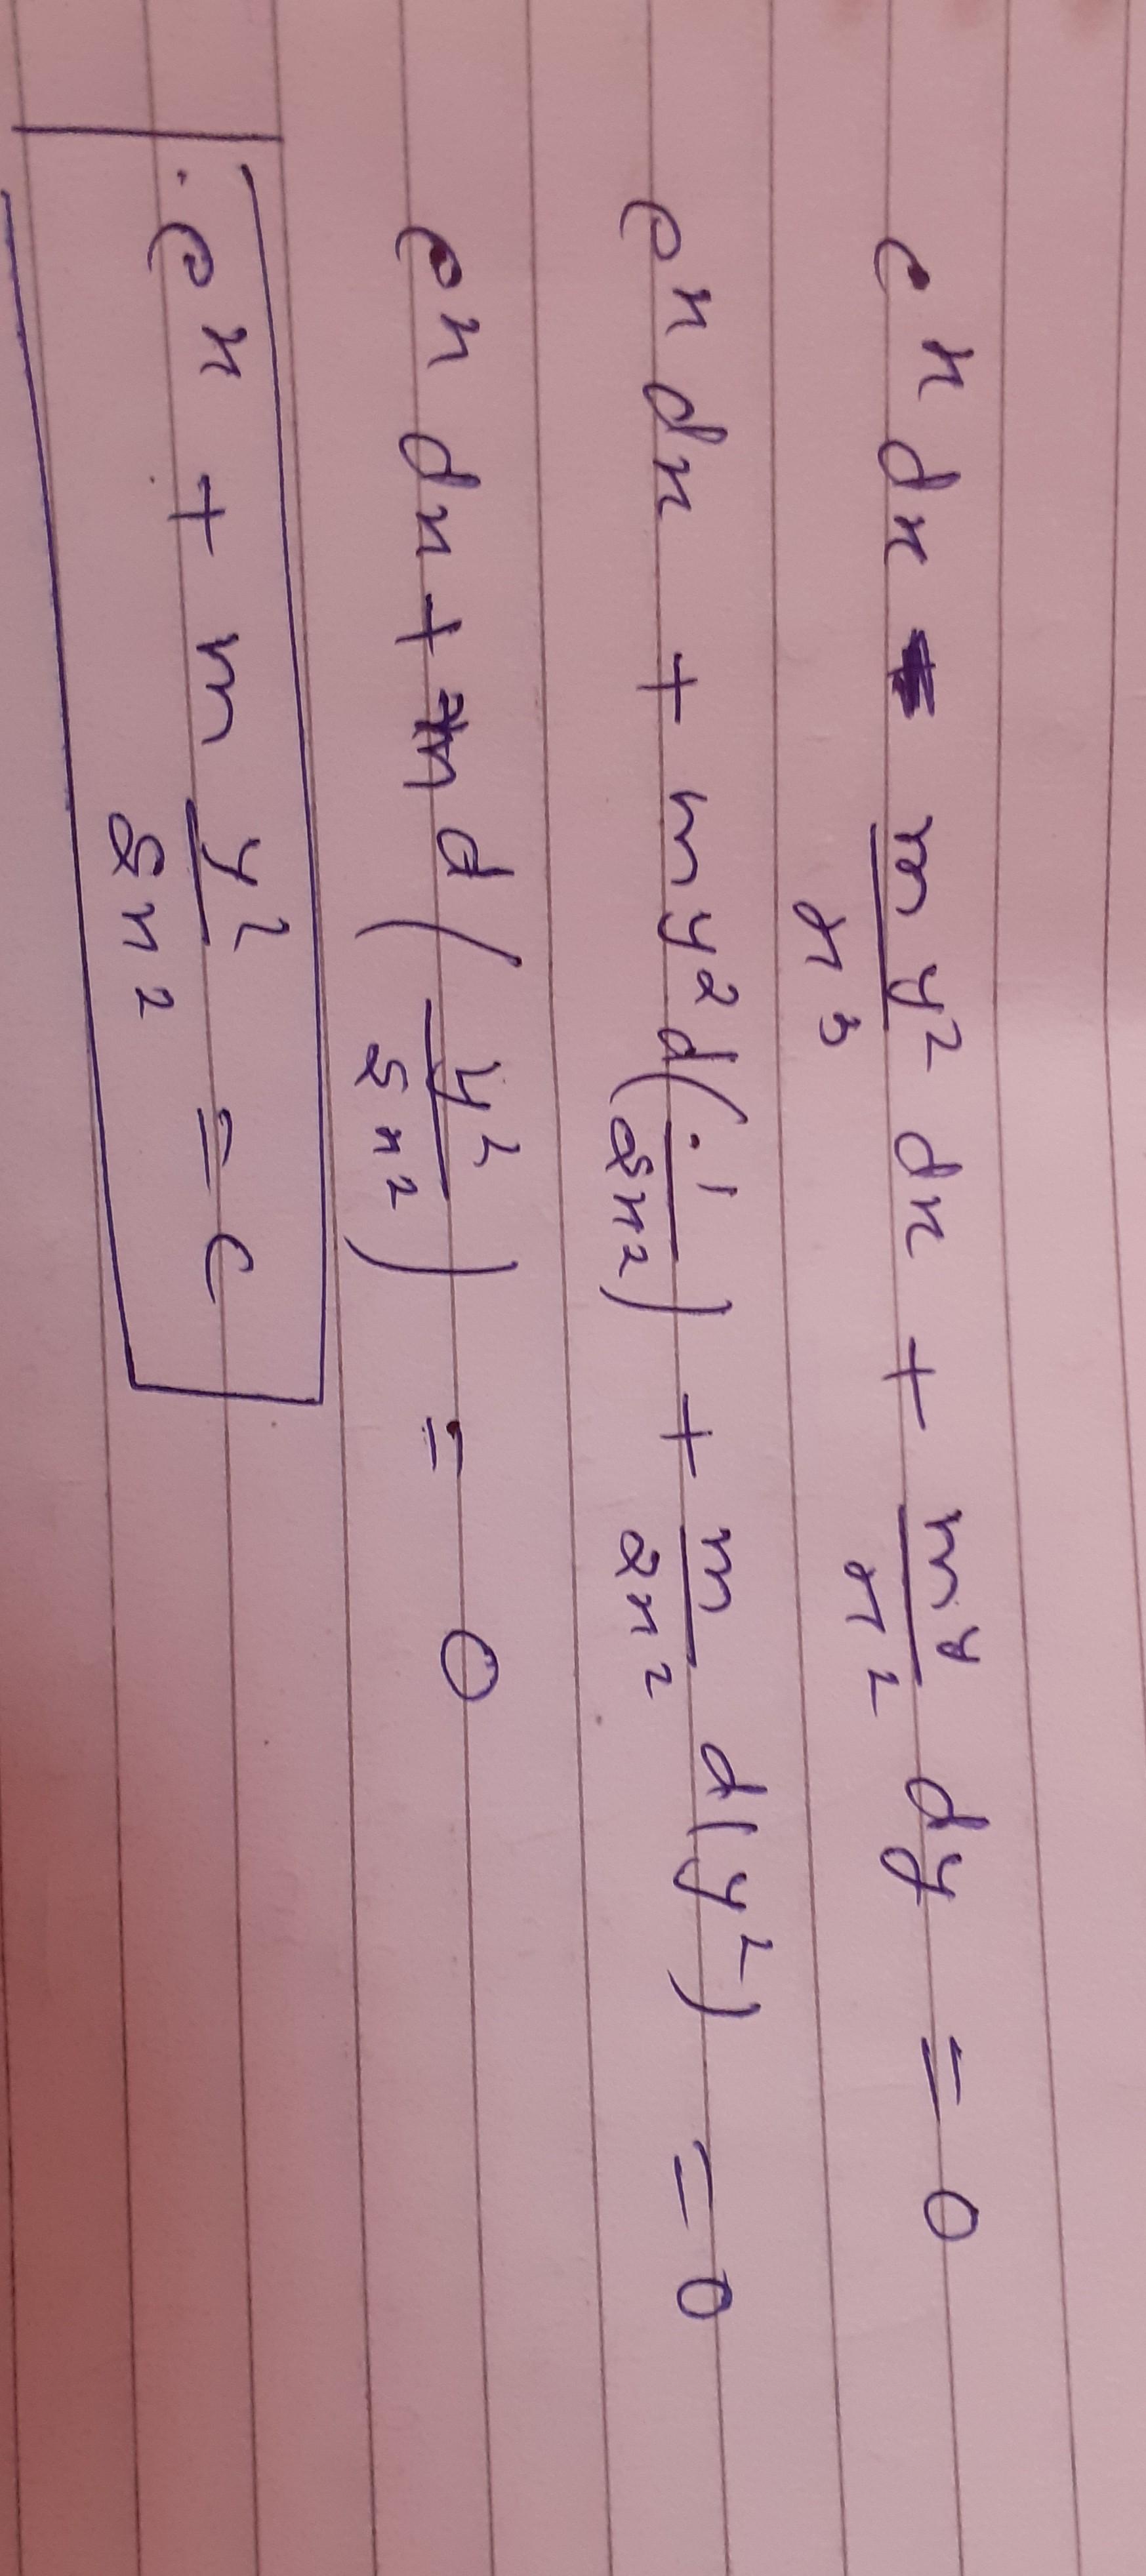 e^x dx - my²/x³ dx + my/x² dy = 0
e^x dx + my² d(1/2x²) + m/2x² d(y²) = 0
e^x dx + m d(y²/2x²) = 0
e^x + m y²/2x² = c